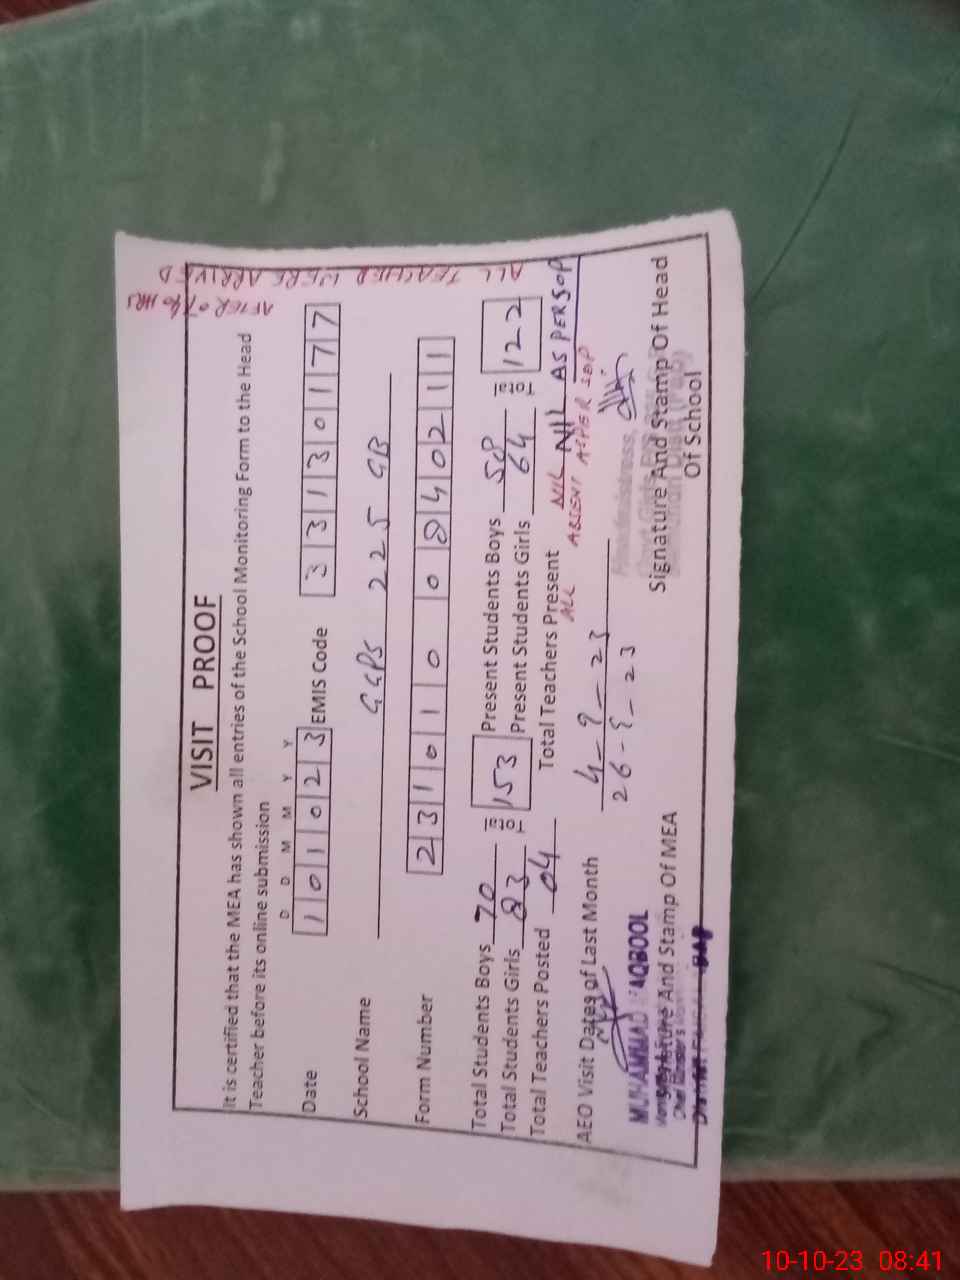 ALL TEACHER WERE ARRIVED
AFTER 07:40 HRS
VISIT PROOF
It is certified that the MEA has shown all entries of the School Monitoring Form to the Head
Teacher before its online submission
D D M M Y Y
Date 1 0 1 0 2 3 EMIS Code 3 3 1 3 0 1 7 7
School Name GGPS 225 GB
Form Number 2 3 1 0 1 0 0 8 4 0 2 1 1
Total Students Boys 70 Total 153 Present Students Boys 58 Total 122
Total Students Girls 83 Present Students Girls 64
Total Teachers Posted 04 Total Teachers Present NIL NIL AS PER SOP
ALL ABSENT AS PER SOP
AEO Visit Dates of Last Month 4-9-23
26-9-23
MUHAMMAD MAQBOOL
Signature And Stamp Of MEA
Signature And Stamp Of Head
Of School
Headmistress,
10-10-23 08:41